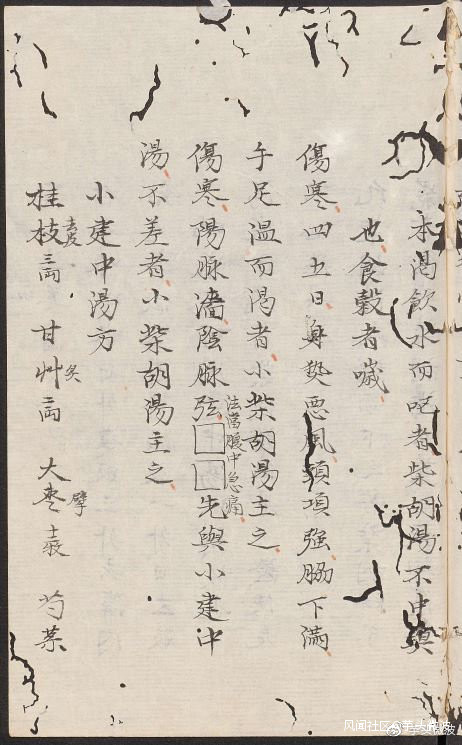 本渴飲水而呕者柴胡湯不中與
也食穀者噦
傷寒四五日身熱恶風頸項强脇下满
手足溫而渴者小柴胡湯主之
傷寒陽脉濇陰脉弦□□先與小建中
法當腹中急痛
湯不差者小柴胡湯主之
小建中湯方
桂枝去皮三兩 甘艸炙二兩 大枣擘十二枚 芍药
风闻社区@第